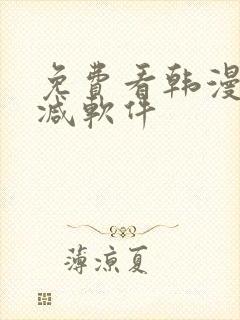 免費看韩漫
减軟件
薄凉夏